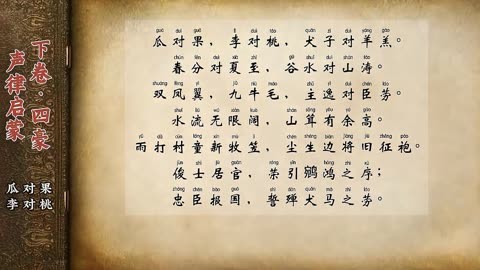 下卷·四豪
声律启蒙
瓜对果
李对桃
瓜对果，李对桃，犬子对羊羔。
春分对夏至，谷水对山涛。
双凤翼，九牛毛，主逸对臣劳。
水流无限阔，山耸有余高。
雨打村童新牧笠，尘生边将旧征袍。
俊士居官，荣引鹓鸿之序；
忠臣报国，誓殚犬马之劳。